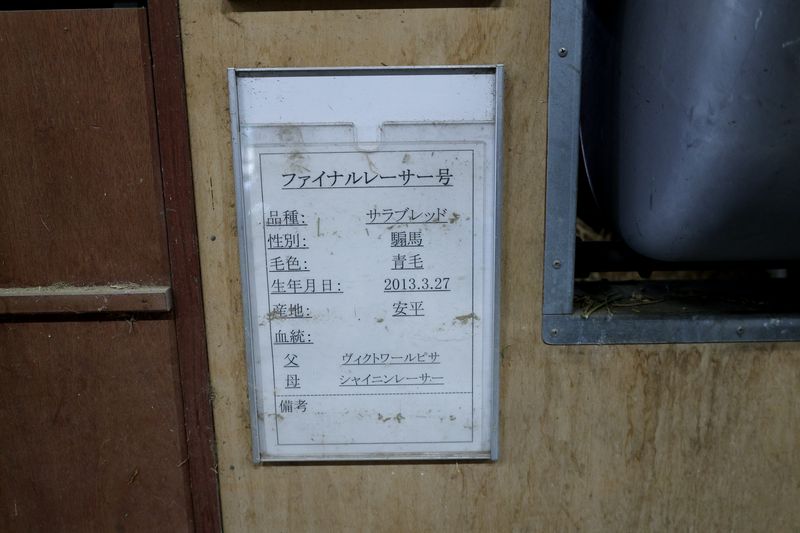 ファイナルレーサー号
品種: サラブレッド
性別: 騸馬
毛色: 青毛
生年月日: 2013.3.27
産地: 安平
血統:
父 ヴィクトワールピサ
母 シャイニンレーサー
備考